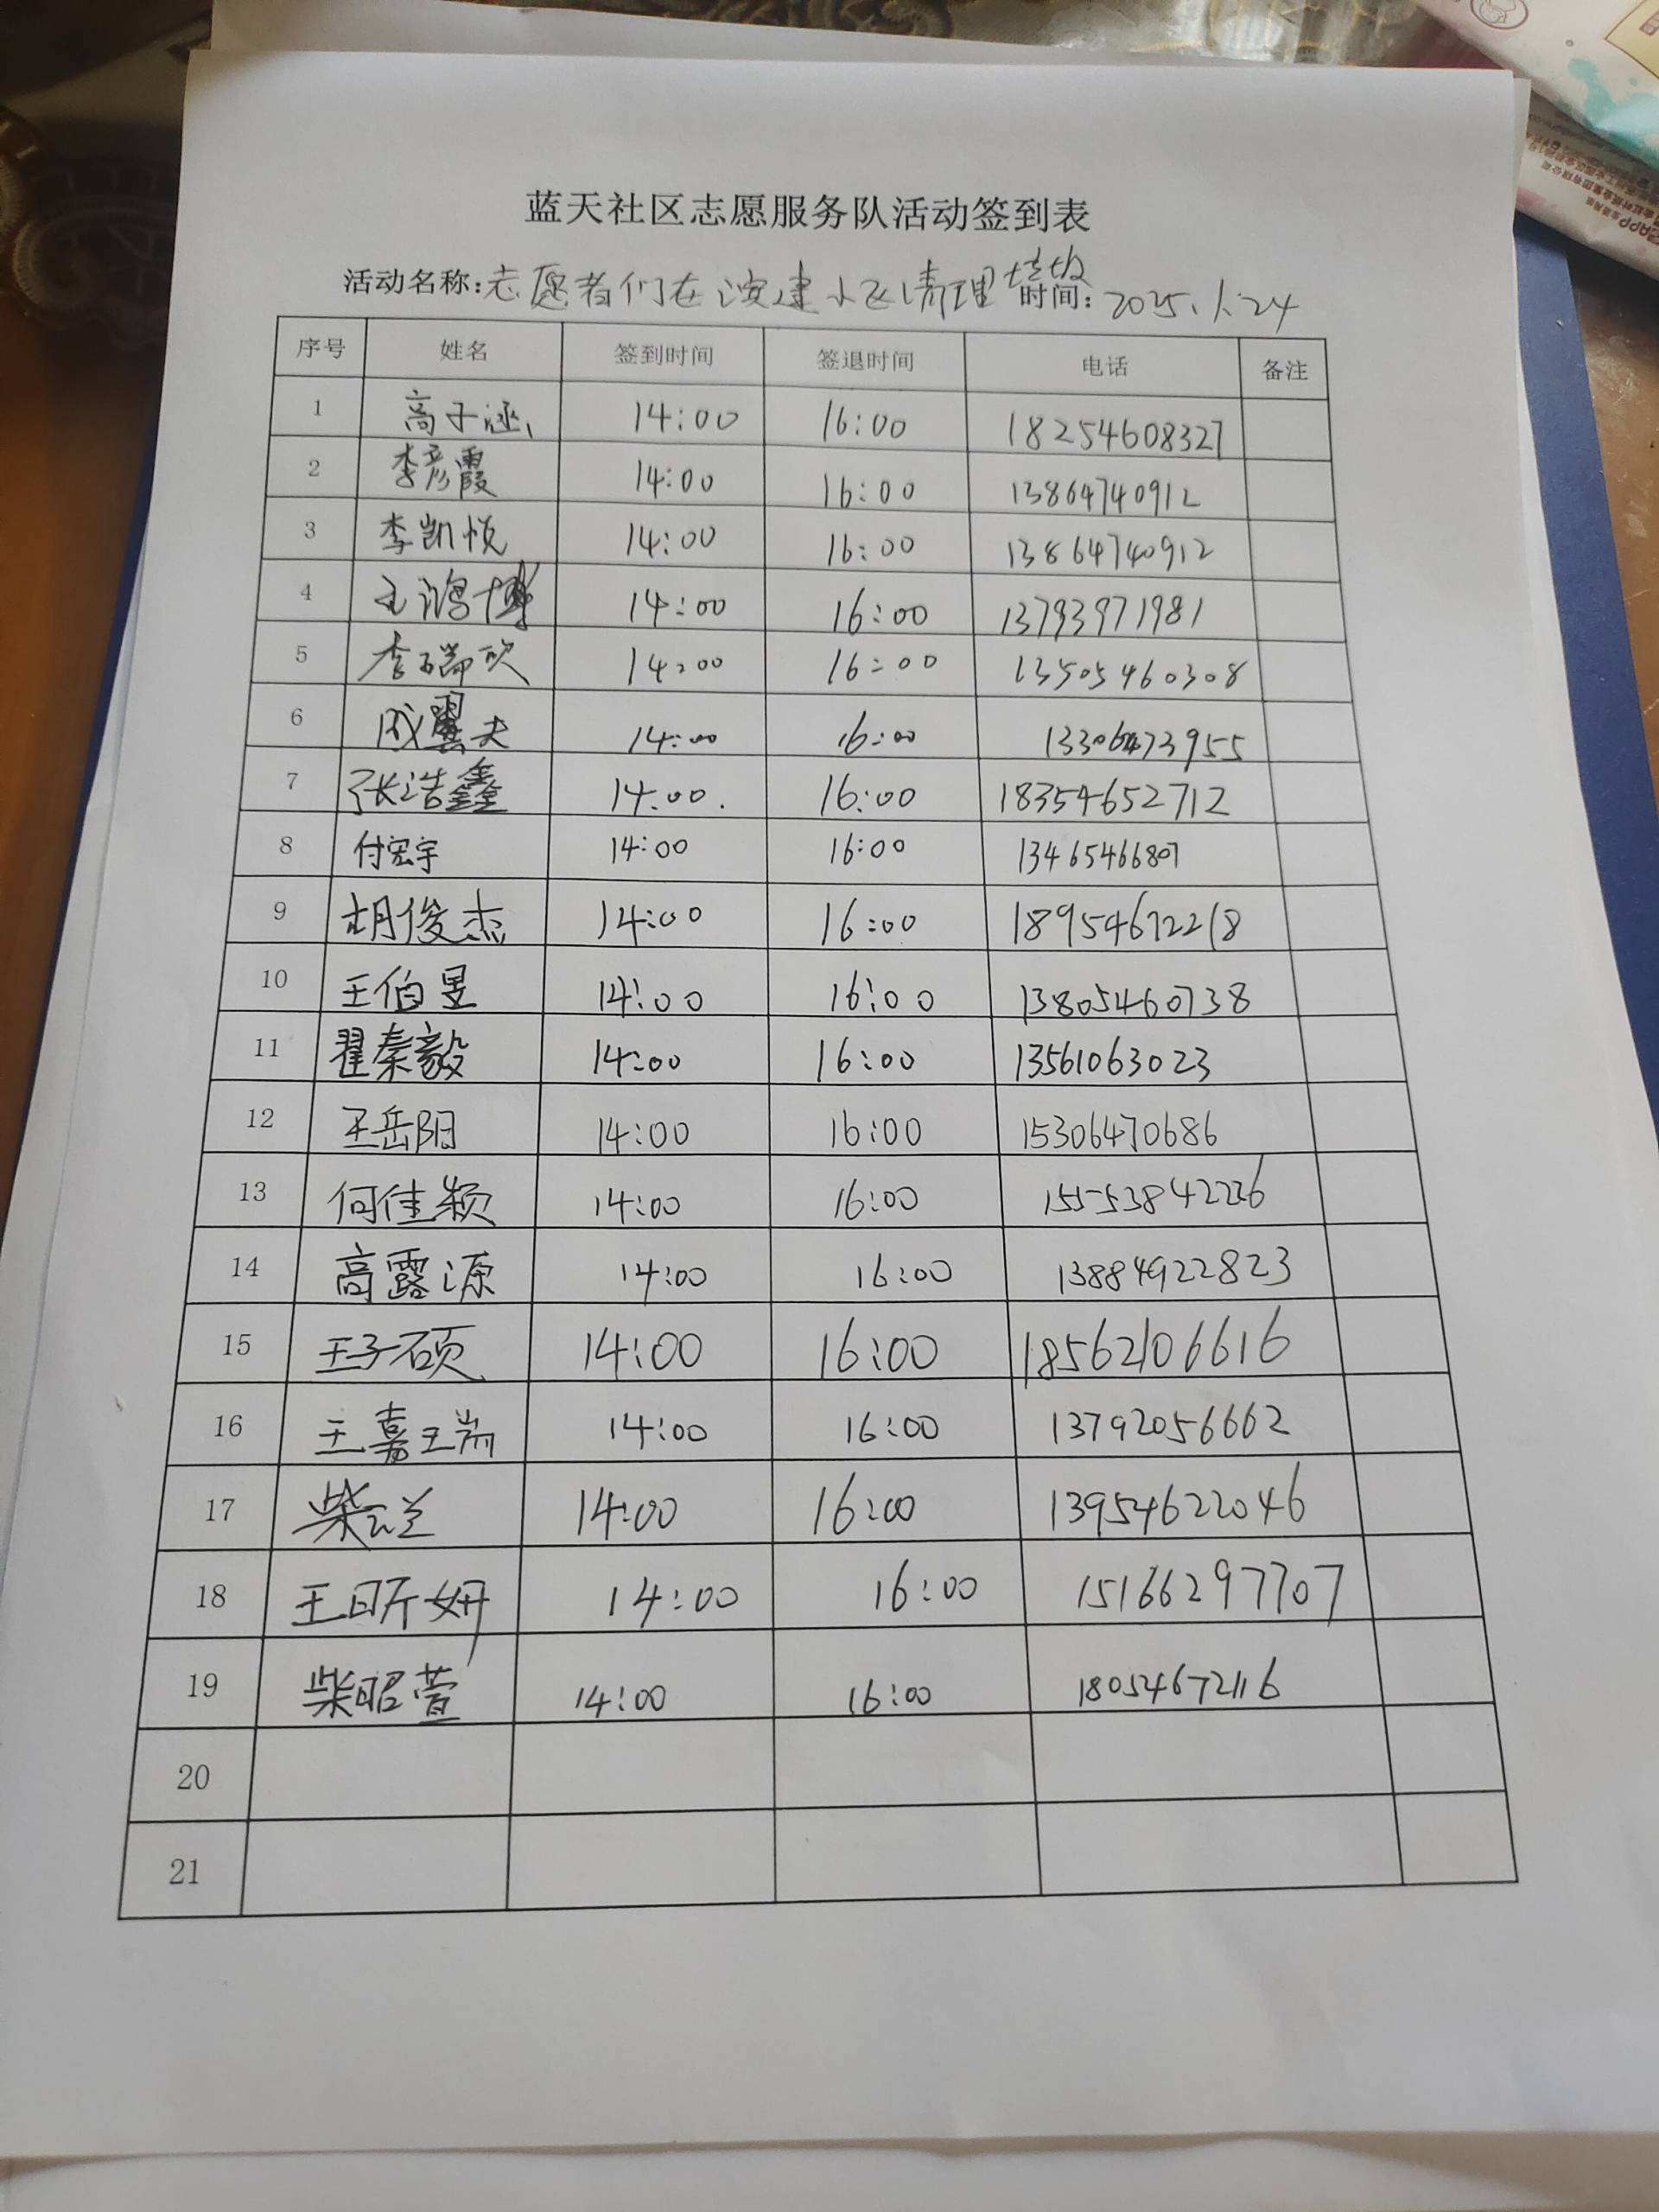 蓝天社区志愿服务队活动签到表
活动名称:志愿者们在滨建小区清理垃圾 时间:2025.1.24
序号 姓名 签到时间 签退时间 电话 备注
1 高子涵 14:00 16:00 18254608327
2 李彦霞 14:00 16:00 13864740912
3 李凯悦 14:00 16:00 13864740912
4 王鸿博 14:00 16:00 13793971981
5 李瑞欣 14:00 16:00 13505460308
6 成翼夫 14:00 16:00 13306473955
7 张浩鑫 14:00 16:00 18354652712
8 付宏宇 14:00 16:00 13465466807
9 胡俊杰 14:00 16:00 18954672218
10 王伯昱 14:00 16:00 13805460738
11 翟秦毅 14:00 16:00 13561063023
12 王岳阳 14:00 16:00 15306470686
13 何佳颖 14:00 16:00
14 高露源 14:00 16:00 13884922823
15 王子硕 14:00 16:00 18562106616
16 王嘉瑞 14:00 16:00 13792056662
17 柴 14:00 16:00 13954622046
18 王昕妍 14:00 16:00 15166297707
19 柴昭萱 14:00 16:00 18054672116
20
21